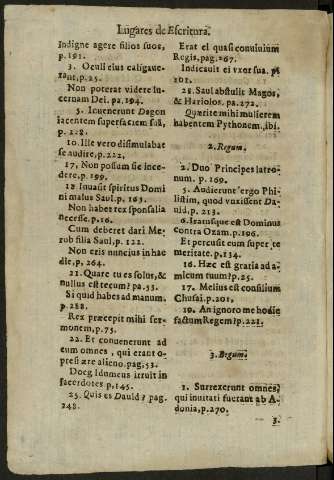 Lugares de Escritura.
Indigne agere filios suos,
p.191.
3. Oculi eius caligaue-
rant, p.25.
Non poterat videre lu-
cernam Dei. pa.194.
5. Inuenerunt Dagon
iacentem super faciem suã,
p. 228.
10. Ille vero dissimulabat
se audire, p.222,
17, Non possum sic ince-
dere, p. 199.
18 Inuasit spiritus Domi
ni malus Saul. p. 163.
Non habet rex sponsalia
necesse. p.16.
Cum deberet dari Me-
rob filia Saul, p. 122.
Non eris nuncius in hac
die, p, 264.
21. Quare tu es solus, &
nullus est tecum? pa.53.
Si quid habes ad manum.
p. 288.
Rex præcepit mihi ser-
monem, p.75.
22. Et conuenerunt ad
eum omnes, qui erant o-
presi ære alieno. pag, 53.
Doeg Idumeus irruit in
sacerdotes p, 145.
25. Quis es Dauid? pag.
248.
Erat ei quasi conuiuium
Regis, pag.267.
Indicauit ei vxor sua. p.
101.
28. Saul abstulit Magos,
& Hariolos. pa.272.
Quærite mihi mulierem
habentem Pythonem, ibi.
2. Regum.
2. Duo Principes latro-
num. p. 169.
5. Audierunt ergo Phi-
listim, quod vnxissent Da-
uid, p. 213.
6. Iratusque est Dominus
contra Ozam. p.196.
Et percusit eum super te
meritate. p.134.
16. Hæc est gratia ad a-
micum tuum? p.25.
17. Melius est consilium
Chusai. p.201,
19. An ignoro me hodie
factum Regem? p.221.
3. Regum.
1. Surrexerunt omnes,
qui inuitati fuerant ab A-
donia, p.270.
3.